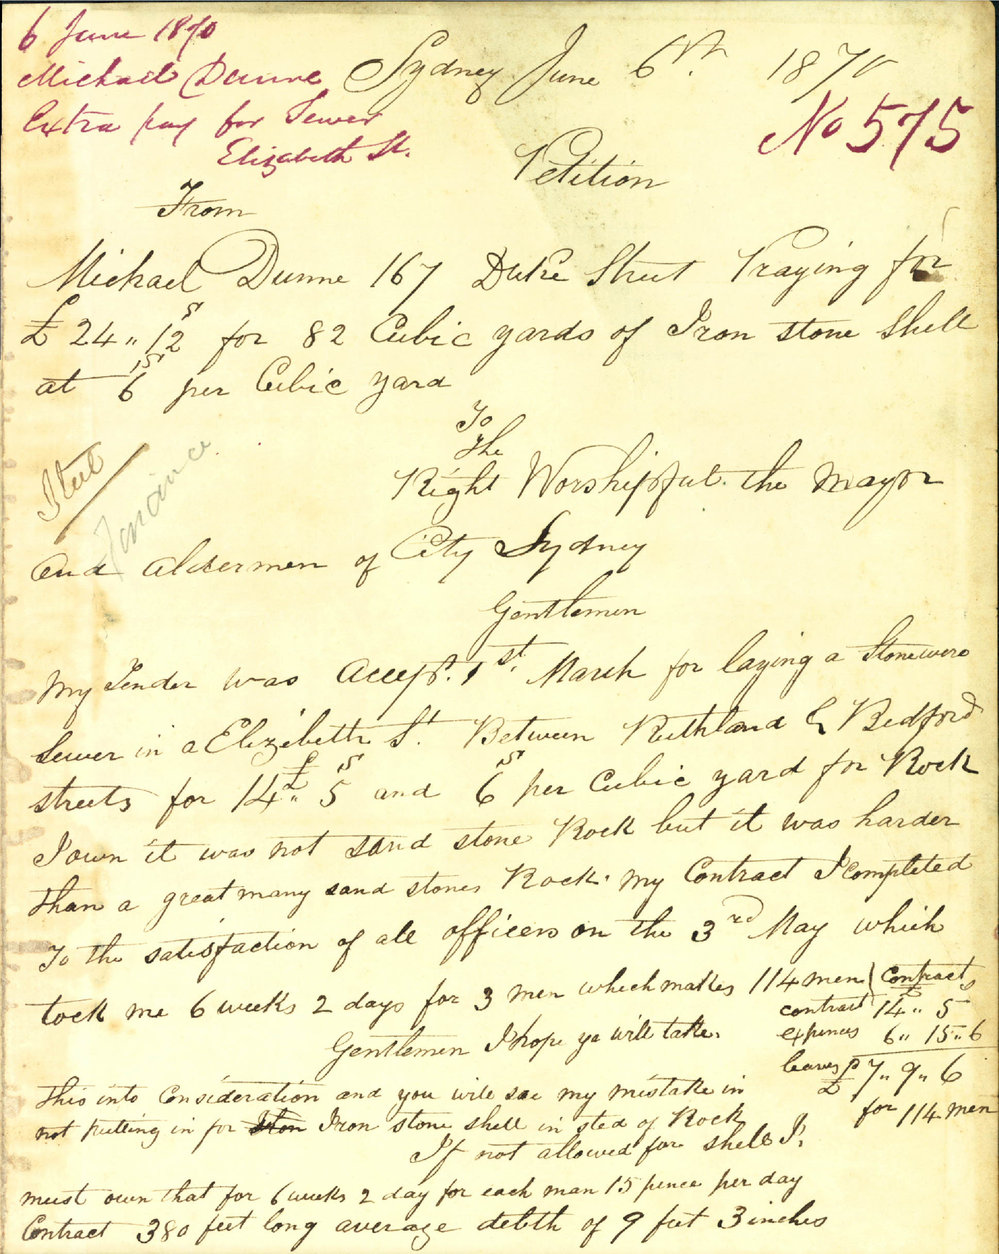 6 June 1870
Michael Dunne
Extra pay for Sewer
Elizabeth St.
Sydney June 6th 1870
No 575
Petition
From
Michael Dunne 167 Duke Street Praying for
£24 " 12s for 82 Cubic yards of Iron stone Shell
at 6s per Cubic yard
To
The
Right Worshipful the Mayor
Finance
and aldermen of City Sydney
Gentlemen
My Tender was Accept. 1st March for laying a Stonewere
Sewer in a Elizibeth St. Between Ruthland & Bedford
streets for 14£ " 5s and 6s per Cubic yard for Rock
I own it was not sand stone Rock but it was harder
than a great many sand stones Rock. my Contract I completed
To the satisfaction of all officers on the 3rd May which
tock me 6 weeks 2 days for 3 men which makes 114 men
Contract
contract 14 " 5s
expences 6 " 15 " 6
leaves £7 " 9 " 6
for 114 men
Gentlemen I hope ye will take
this into Consideration and you will sae my mistake in
not putting in for Iron Iron stone shell in sted of Rock
If not allowed for shell I
must own that for 6 weeks 2 day for each man 15 pence per day
Contract 380 feet long average debth of 9 feet 3 inches